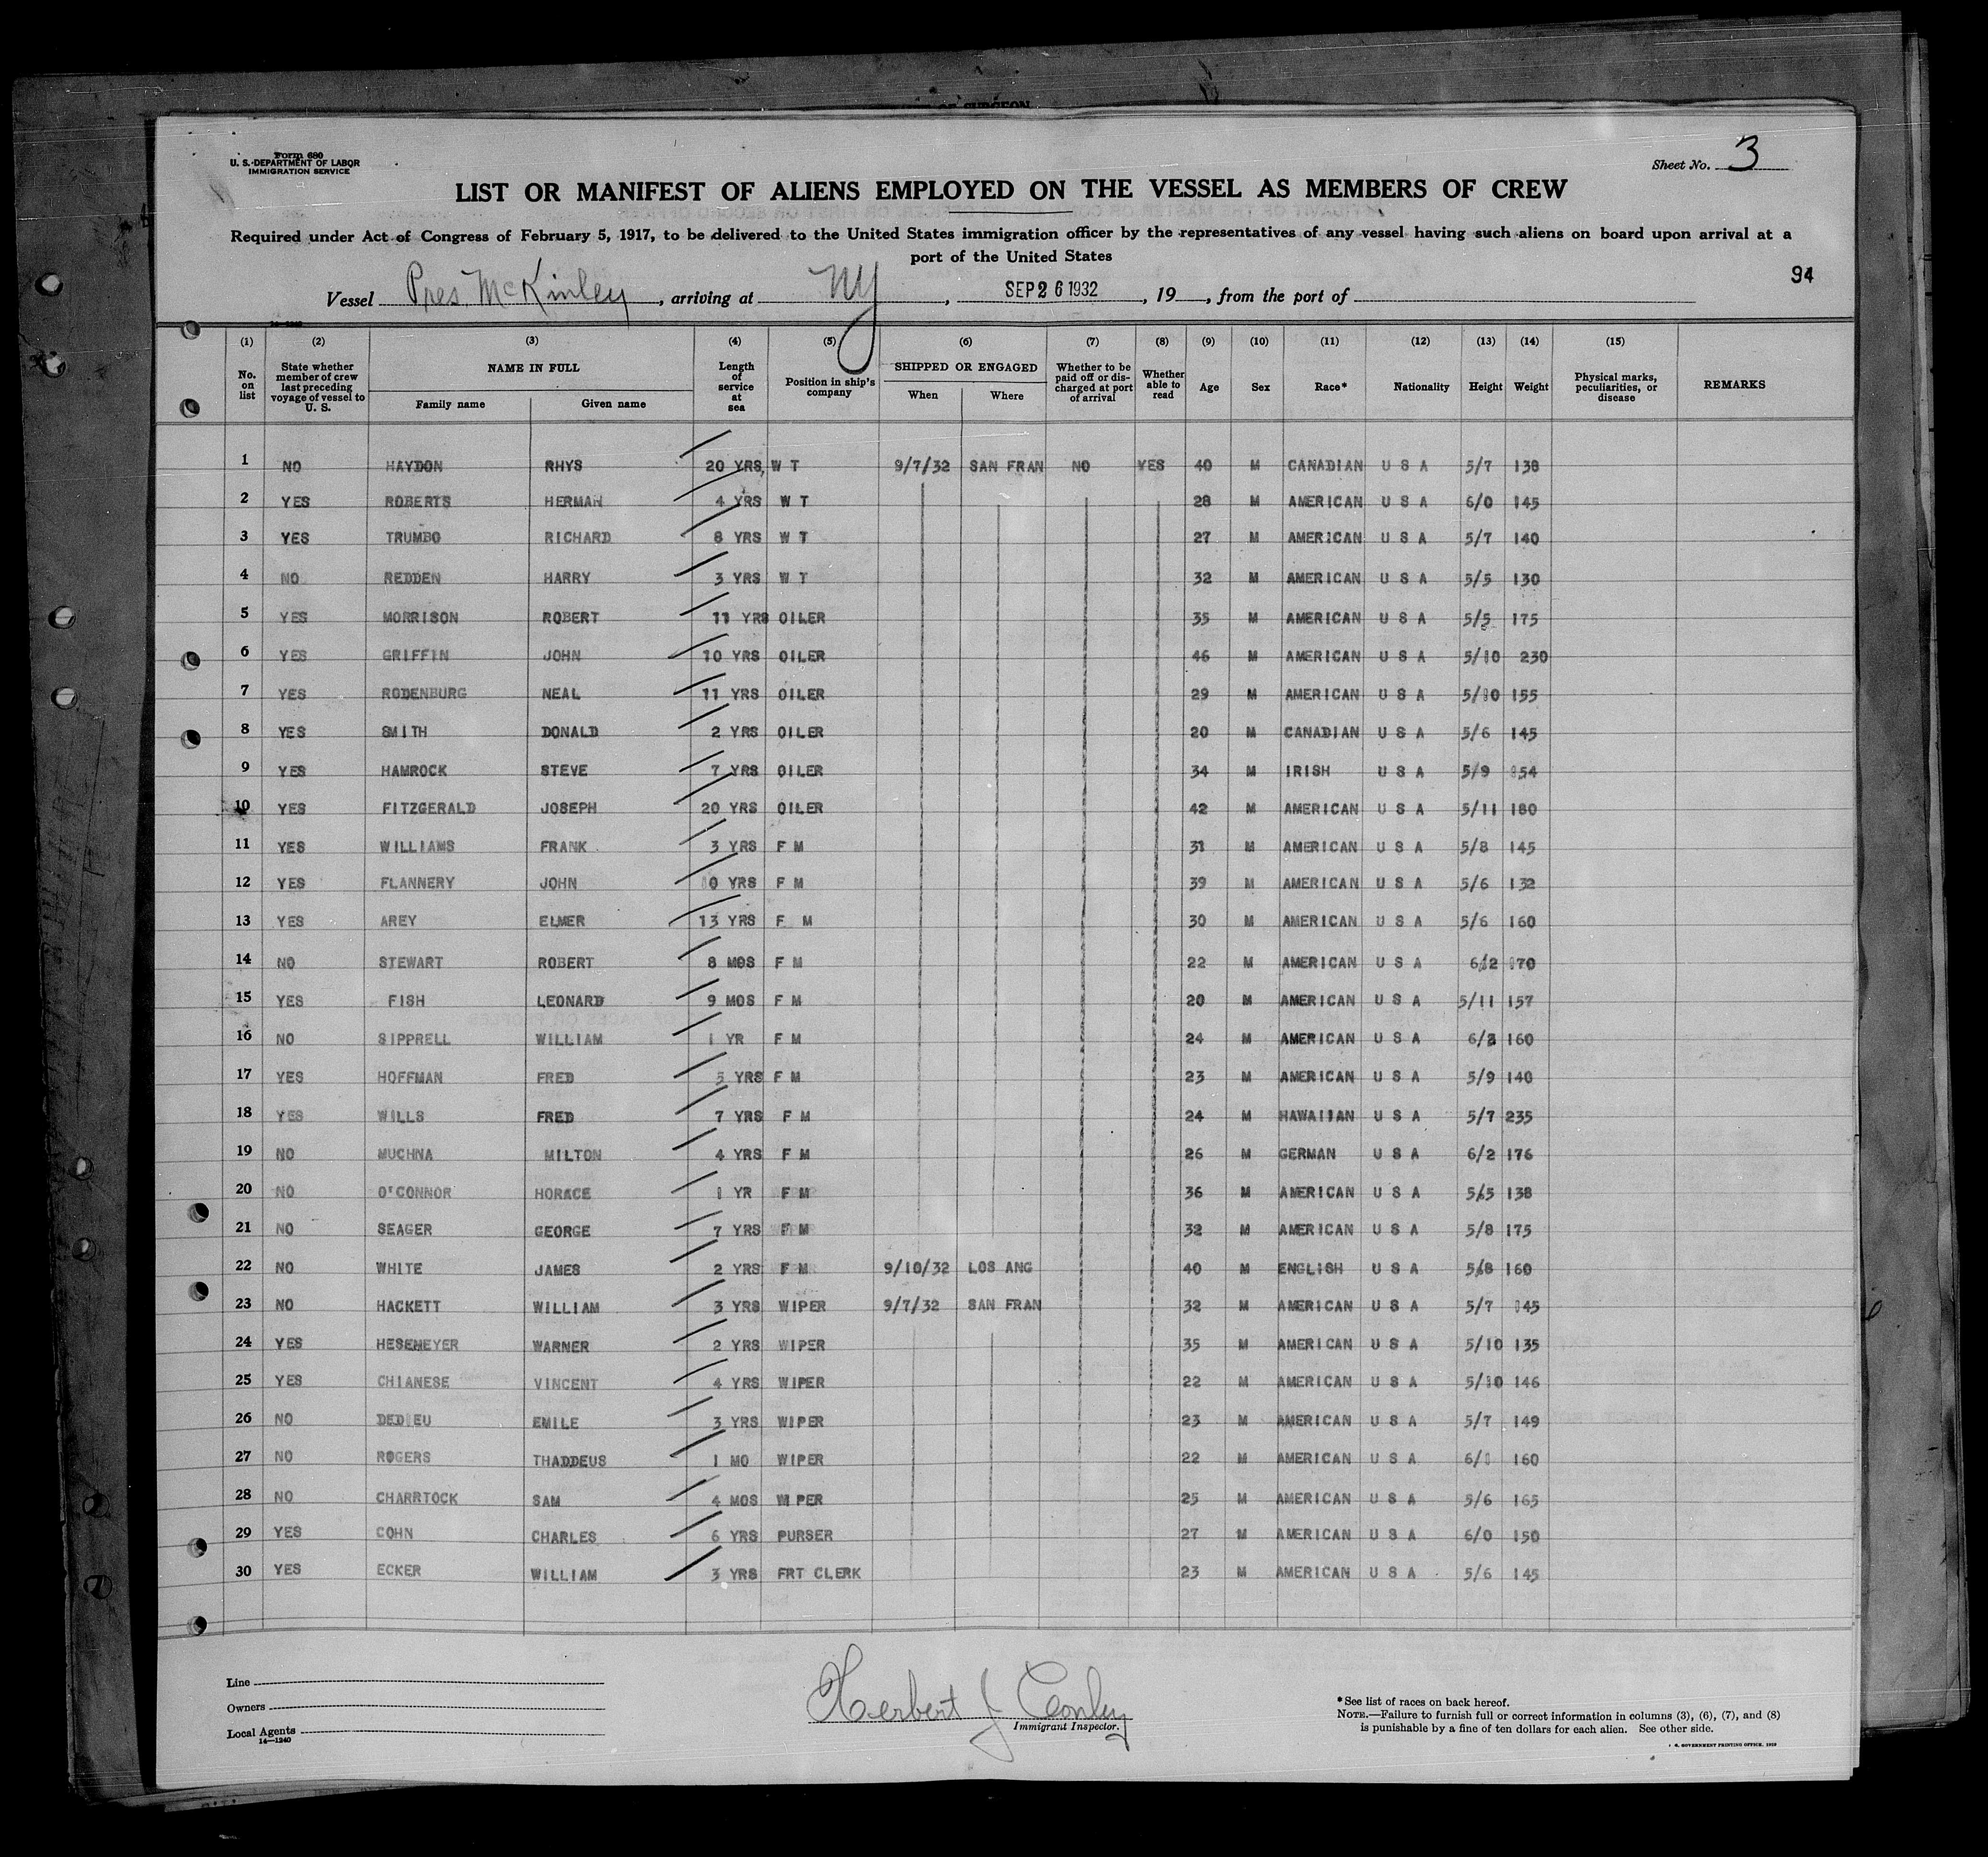 Form 680
U. S. DEPARTMENT OF LABOR
IMMIGRATION SERVICE
Sheet No. 3
LIST OR MANIFEST OF ALIENS EMPLOYED ON THE VESSEL AS MEMBERS OF CREW
Required under Act of Congress of February 5, 1917, to be delivered to the United States immigration officer by the representatives of any vessel having such aliens on board upon arrival at a
port of the United States
94
Vessel Pres. McKinley, arriving at NY, SEP 26 1932, 19 , from the port of
(1) (2) (3) (4) (5) (6) (7) (8) (9) (10) (11) (12) (13) (14) (15)
No. on list State whether member of crew last preceding voyage of vessel to U. S. NAME IN FULL Family name Given name Length of service at sea Position in ship's company SHIPPED OR ENGAGED When Where Whether to be paid off or discharged at port of arrival Whether able to read Age Sex Race* Nationality Height Weight Physical marks, peculiarities, or disease REMARKS
1 NO HAYDON RHYS 20 YRS, W T 9/7/32 SAN FRAN NO YES 40 M CANADIAN U S A 5/7 138
2 YES ROBERTS HERMAN 4 YRS W T 28 M AMERICAN U S A 6/0 145
3 YES TRUMBO RICHARD 8 YRS W T 27 M AMERICAN U S A 5/7 140
4 NO REDDEN HARRY 3 YRS W T 32 M AMERICAN U S A 5/5 130
5 YES MORRISON ROBERT 11 YRS OILER 35 M AMERICAN U S A 5/5 175
6 YES GRIFFIN JOHN 10 YRS OILER 46 M AMERICAN U S A 5/10 230
7 YES RODENBURG NEAL 11 YRS OILER 29 M AMERICAN U S A 5/10 155
8 YES SMITH DONALD 2 YRS OILER 20 M CANADIAN U S A 5/6 145
9 YES HAMROCK STEVE 7 YRS OILER 34 M IRISH U S A 5/9 154
10 YES FITZGERALD JOSEPH 20 YRS OILER 42 M AMERICAN U S A 5/11 180
11 YES WILLIAMS FRANK 3 YRS F M 31 M AMERICAN U S A 5/8 145
12 YES FLANNERY JOHN 10 YRS F M 39 M AMERICAN U S A 5/6 132
13 YES AREY ELMER 13 YRS F M 30 M AMERICAN U S A 5/6 160
14 NO STEWART ROBERT 8 MOS F M 22 M AMERICAN U S A 6/2 170
15 YES FISH LEONARD 9 MOS F M 20 M AMERICAN U S A 5/11 157
16 NO SIPPRELL WILLIAM 1 YR F M 24 M AMERICAN U S A 160
17 YES HOFFMAN FRED 5 YRS F M 23 M AMERICAN U S A 5/9 140
18 YES WILLS FRED 7 YRS F M 24 M HAWAIIAN U S A 5/7 235
19 NO MUCHNA MILTON 4 YRS F M 26 M GERMAN U S A 6/2 176
20 NO O'CONNOR HORACE 1 YR F M 36 M AMERICAN U S A 5/5 138
21 NO SEAGER GEORGE 7 YRS F M 32 M AMERICAN U S A 5/8 175
22 NO WHITE JAMES 2 YRS F M 9/10/32 LOS ANG 40 M ENGLISH U S A 5/8 160
23 NO HACKETT WILLIAM 3 YRS WIPER 9/7/32 SAN FRAN 32 M AMERICAN U S A 5/7 145
24 YES HESEMEYER WARNER 2 YRS WIPER 35 M AMERICAN U S A 5/10 135
25 YES CHIANESE VINCENT 4 YRS WIPER 22 M AMERICAN U S A 5/10 146
26 NO DEDIEU EMILE 3 YRS WIPER 23 M AMERICAN U S A 5/7 149
27 NO ROGERS THADDEUS 1 MO WIPER 22 M AMERICAN U S A 6/1 160
28 NO CHARRTOCK SAM 4 MOS WIPER 25 M AMERICAN U S A 5/6 165
29 YES COHN CHARLES 6 YRS PURSER 27 M AMERICAN U S A 6/0 150
30 YES ECKER WILLIAM 3 YRS FRT CLERK 23 M AMERICAN U S A 5/6 145
Line
Owners
Local Agents
14—1240
Herbert J Conley
Immigrant Inspector.
*See list of races on back hereof.
NOTE.—Failure to furnish full or correct information in columns (3), (6), (7), and (8)
is punishable by a fine of ten dollars for each alien. See other side.
GOVERNMENT PRINTING OFFICE